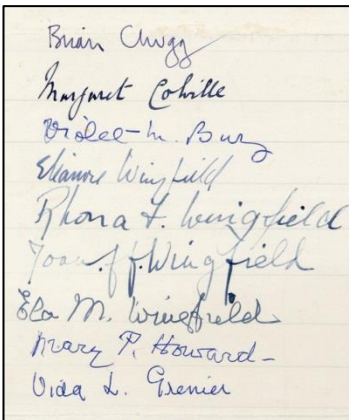 Brian Chugg
Margaret Colville
Violet M. Bury
Eleanore Wingfield
Rhona F. Wingfield
Joan . f. Wingfield
Ela M. Wingfield
Mary P. Howard
Vida L. Grenier